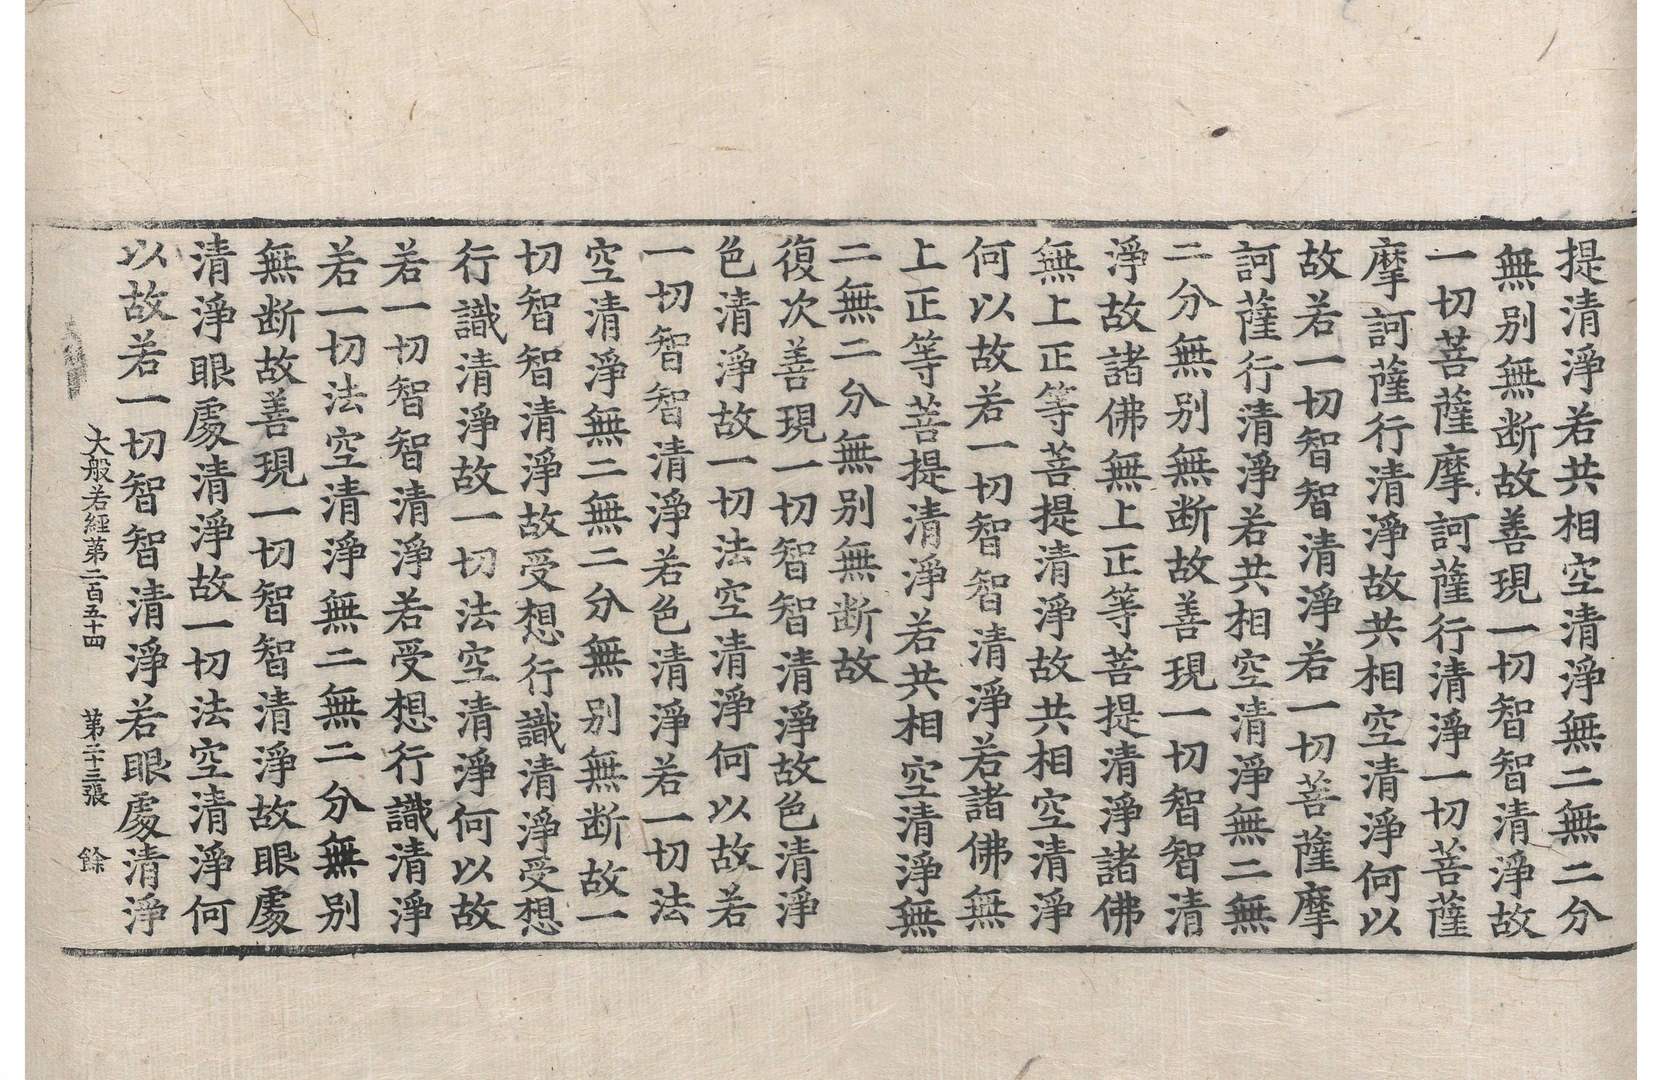 提清淨若共相空清淨無二無二分
無別無斷故善現一切智智清淨故
一切菩薩摩訶薩行清淨一切菩薩
摩訶薩行清淨故共相空清淨何以
故若一切智智清淨若一切菩薩摩
訶薩行清淨若共相空清淨無二無
二分無別無斷故善現一切智智清
淨故諸佛無上正等菩提清淨諸佛
無上正等菩提清淨故共相空清淨
何以故若一切智智清淨若諸佛無
上正等菩提清淨若共相空清淨無
二無二分無別無斷故
復次善現一切智智清淨故色清淨
色清淨故一切法空清淨何以故若
一切智智清淨若色清淨若一切法
空清淨無二無二分無別無斷故一
切智智清淨故受想行識清淨受想
行識清淨故一切法空清淨何以故
若一切智智清淨若受想行識清淨
若一切法空清淨無二無二分無別
無斷故善現一切智智清淨故眼處
清淨眼處清淨故一切法空清淨何
以故若一切智智清淨若眼處清淨
大般若經第二百五十四 第二十三張 餘